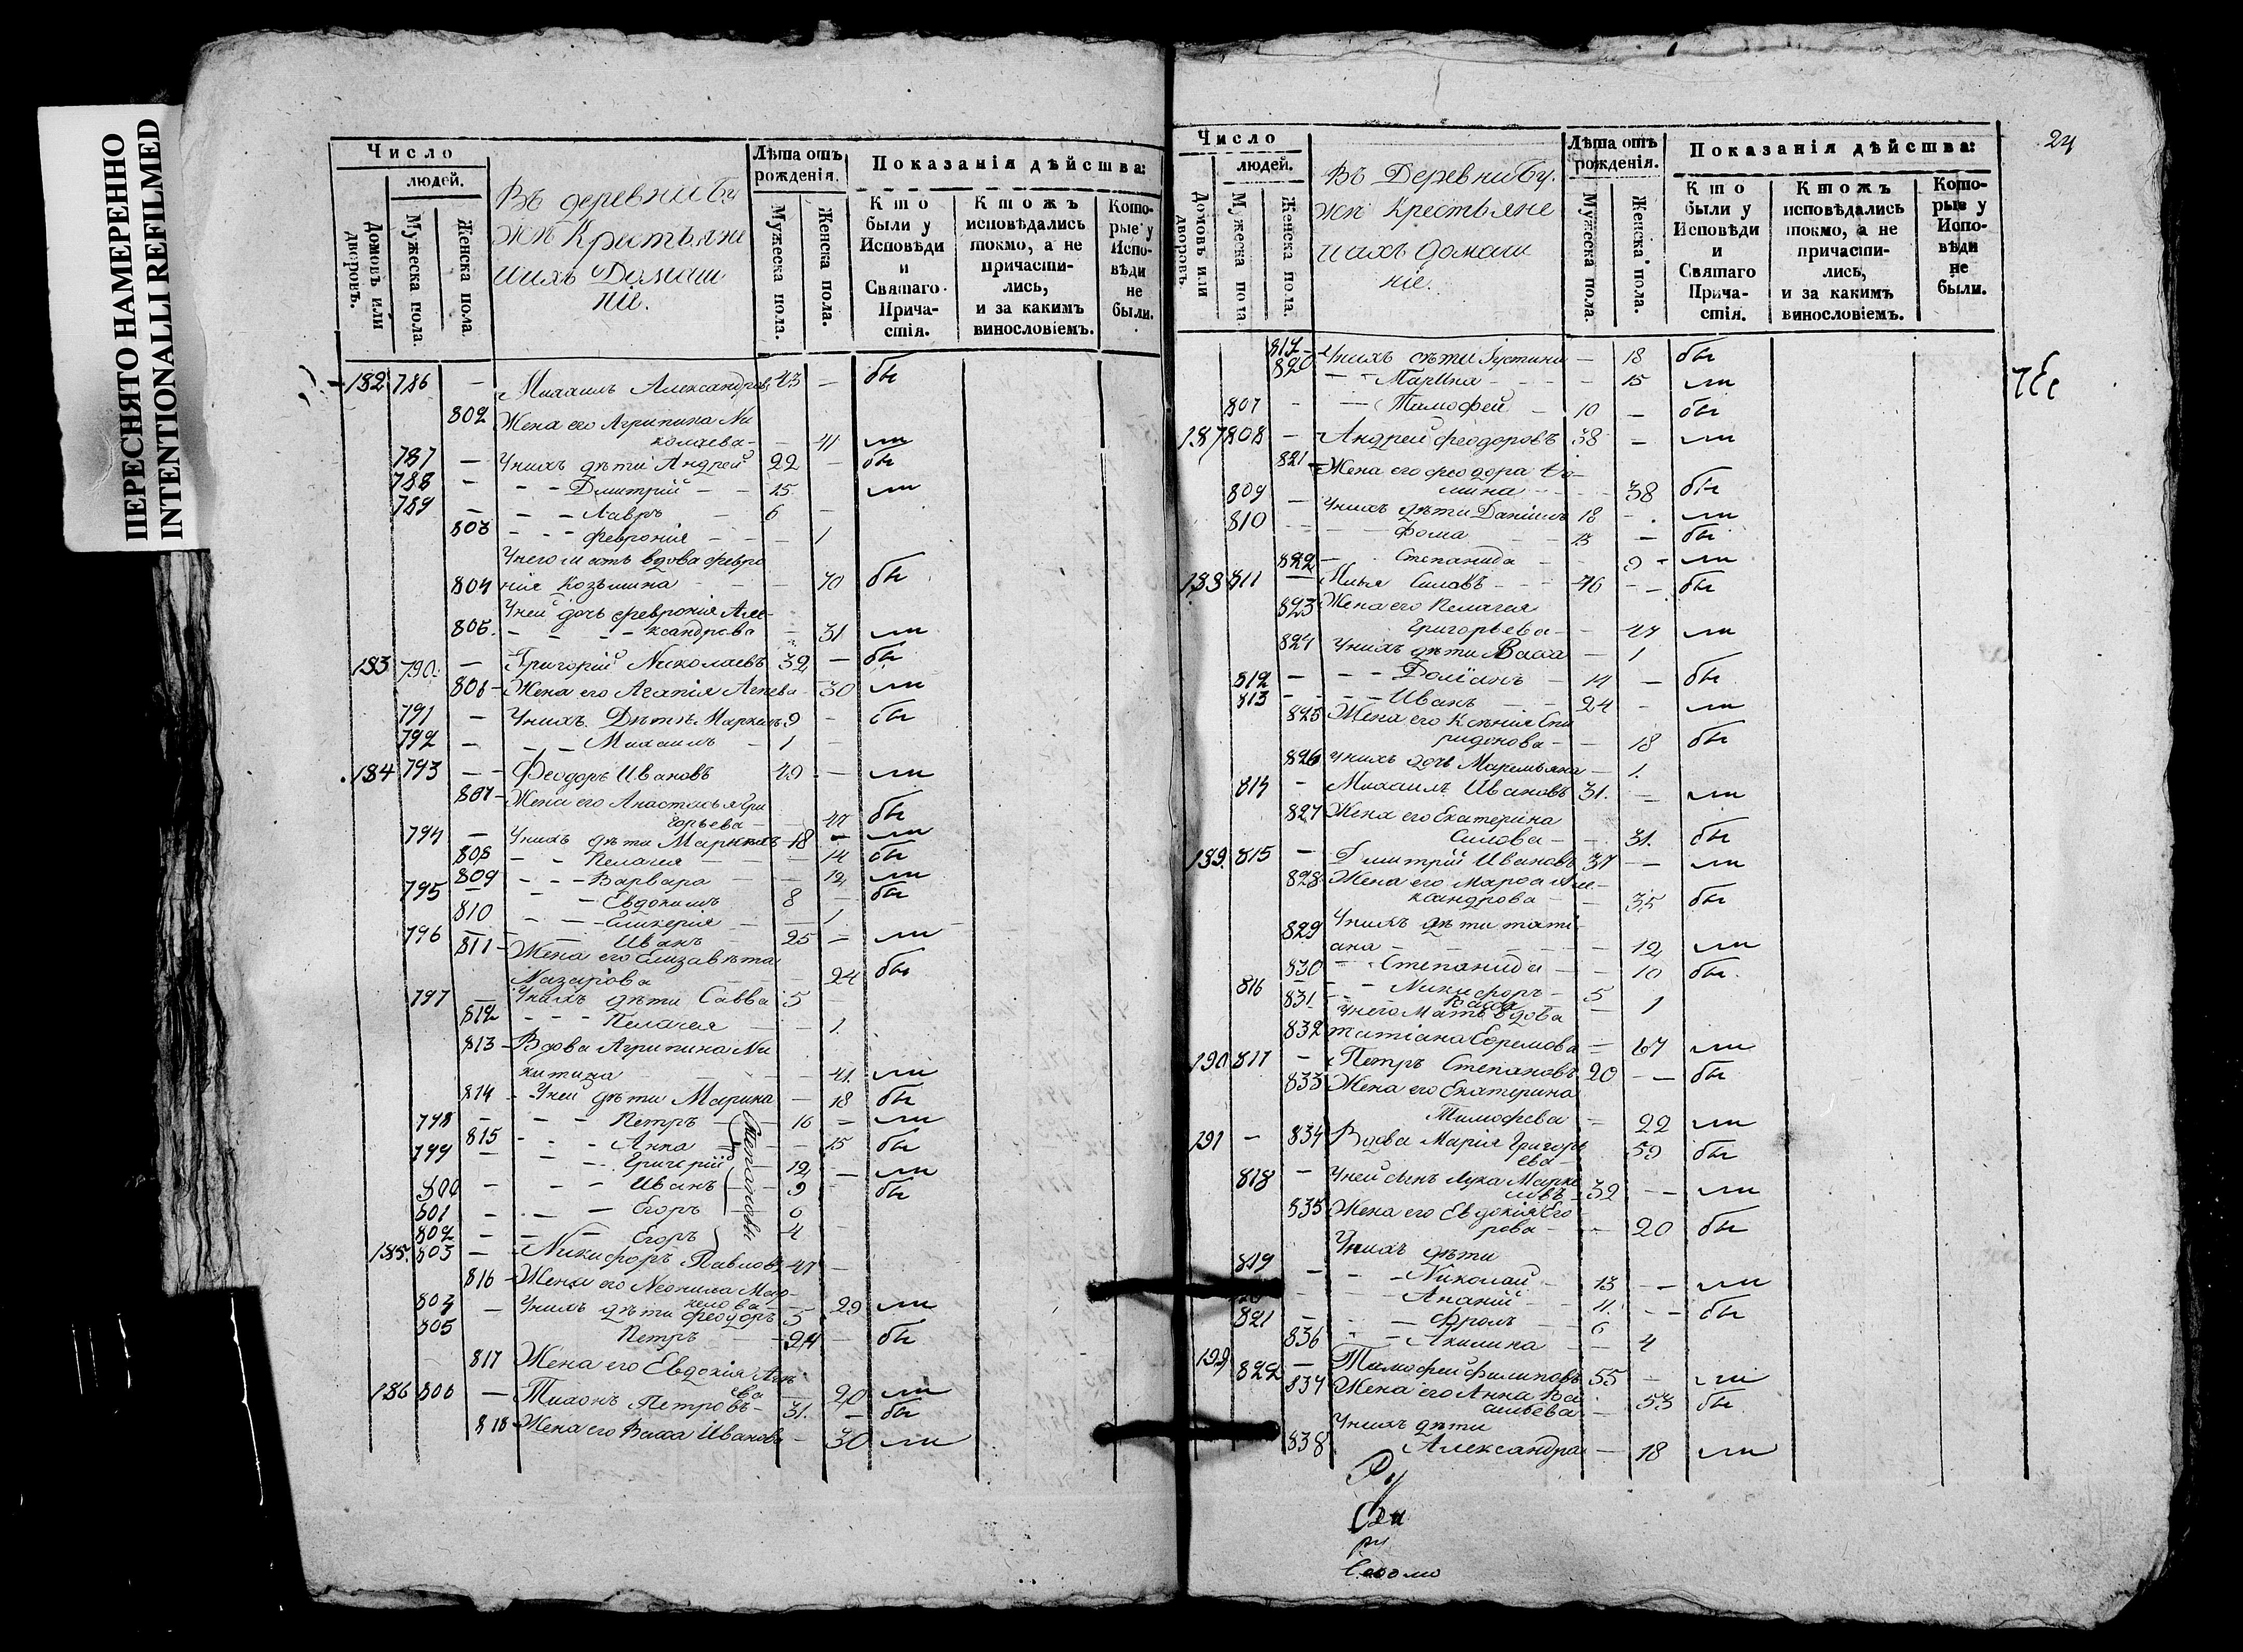 ПЕРЕСНЯТО НАМЕРЕННО
INTENTIONALLI REFILMED
Число
людей.
Домовъ или дворовъ.
Мужеска пола.
Женска пола.
Въ деревни Бу
жи Крестьяне
иихъ Домаш
ніе.
Лѣта отъ рожденія.
Мужеска пола.
Женска пола.
Показанія дѣйства:
Кто были у Исповѣди и Святаго Причастія.
Ктожъ исповѣдались токмо, а не причастились, и за какимъ винословіемъ.
Которые у Исповѣди не были.
182 786 — Михаилъ Александровъ 43 — бы
802 Жена его Агрипина Ни
колаева — 41 ли
787 — Унихъ дѣти Андрей 22 — бы
788 — Дмитрій — 15 ли
789 — Лавръ — 6 —
803 — Феврония — 1
Унего мать вдова Февро
804 ния Козьмина — 70 бы
Уней дочь Феврония Але
805. — ксандрова — 31 ли
183 790. — Григорій Николаевъ 32 — бы
806 — Жена его Агапія — 30 ли
791 — Унихъ Дѣти Маркелъ 9 — бы
792 — Михаилъ — 1 —
184 793 — Феодоръ Ивановъ 49 — ли
807 — Жена его Анастасья Гри
горьева — 47 бы
794 — Унихъ дѣти — 18 — ли
808 — Пелагея — 14 бы
809 — Варвара — 12 ли
795 — Евдокимъ 8 — бы
810 — Гликерія — 1
796 — Иванъ — 25 — ли
811 — Жена его Елизавѣта
Назарова — 24 бы
797 — Унихъ дѣти Савва 5 —
812 — Пелагея — 1.
813 — Вдова Агрипина Ни
китина — 41. ли
814 — Уней дѣти Марина — 18 бы
798 — Петръ — 16 — ли
815 — Анна — 15 бы
799 — Григорій — 12 — ли
800 — Иванъ — 9 — бы
801 — Егоръ 6
802 — Егоръ 4 —
Степановы
185. 803 — Никифоръ Павловъ 47 —
816 — Жена его Неонила Мар
келова — 29 ли
804 — Унихъ дѣти Феодоръ 5
805 Петръ — 24 — бы
817 Жена его Евдокія
ева — 20 ли
186 806 — Тихонъ Петровъ — 31. — бы
818 Жена его Васса Иванова — 30 ли
Число
людей.
Домовъ или дворовъ.
Мужеска пола.
Женска пола.
Въ Деревни Бу.
жи Крестьяне
иихъ домаш
ніе.
Лѣта отъ рожденія.
Мужеска пола.
Женска пола.
Показанія дѣйства:
Кто были у Исповѣди и Святаго Причастія.
Ктожъ исповѣдались токмо, а не причастились, и за какимъ винословіемъ.
Которые у Исповѣди не были.
24
819 — Унихъ дѣти Іустина — 18 бы
820 — Марина — 15 ли
807 — Тимофей — 10 — бы
187 808 — Андрей Феодоровъ 38 — ли
821 — Жена его Феодора Фо
мина — 38 бы
809 — Унихъ дѣти Даніилъ 18 — ли
810 — Фома — 13 — бы
822 — Степанида — 9 — ли
188 811 — Илья Силовъ — 46 — бы
823 Жена его Пелагея
Григорьева — 47 ли
824 Унихъ дѣти Васса — 1
812 — 14 — бы
813 — Иванъ — 24 — ли
825 Жена его Ксенія Спи
ридонова — 18 бы
826 Унихъ дочь Маремьяна — 1.
814 — Михаилъ Ивановъ 31. — ли
827 Жена его Екатерина
Силова — 31. бы
189. 815 — Дмитрій Ивановъ 37 — ли
828 Жена его Марѳа Але
ксандрова — 35 бы
829 Унихъ дѣти Тати
ана — 12 ли
830 — Степанида — 10 бы.
816 — Никифоръ — 5
831 — Васса — 1
Унего Мать вдова
832 Татіана Ефремова — 67 ли
190 817 — Петръ Степановъ 20 — бы
833 Жена его Екатерина
Тимофева — 22 ли
191 — 834 Вдова Марія Григорь
ева — 59 бы
818 — Уней сынъ Лука Марке
ловъ — 32 — ли
835 Жена его Евдокія Его
рова — 20 бы
Унихъ дѣти
819 — Николай — 13 — ли
— Ананій — 11. — бы
821 — Фролъ — 6
836 — Акилина — 4
192 822 — Тимофей Филиповъ 55 — ли
837 Жена его Анна Ва
сильева — 53 бы
Унихъ дѣти
838 Александра — 18 ли